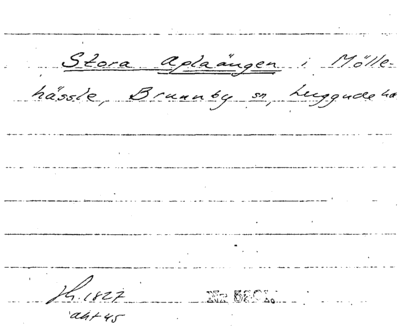 Stora Aplaängen i Mölle-
hässle, Brunnby sn, Luggude ha
1827
akt 45